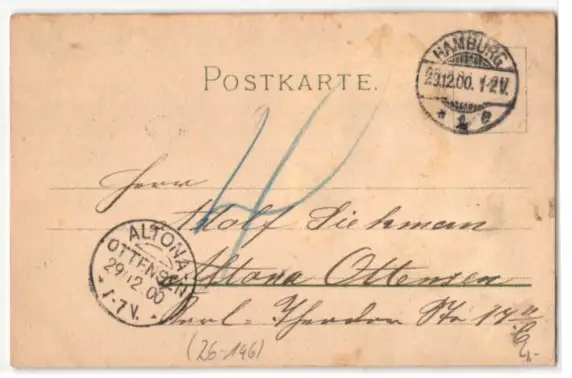 POSTKARTE.
HAMBURG
29.12.00. 1-2V.
* 1 e
4
Herr
Adolf Siekmann
Altona Ottensen
Carl-Theodor Str. 17
ALTONA-
OTTENSEN
29/12 00
*1-7V.*
(26-196)